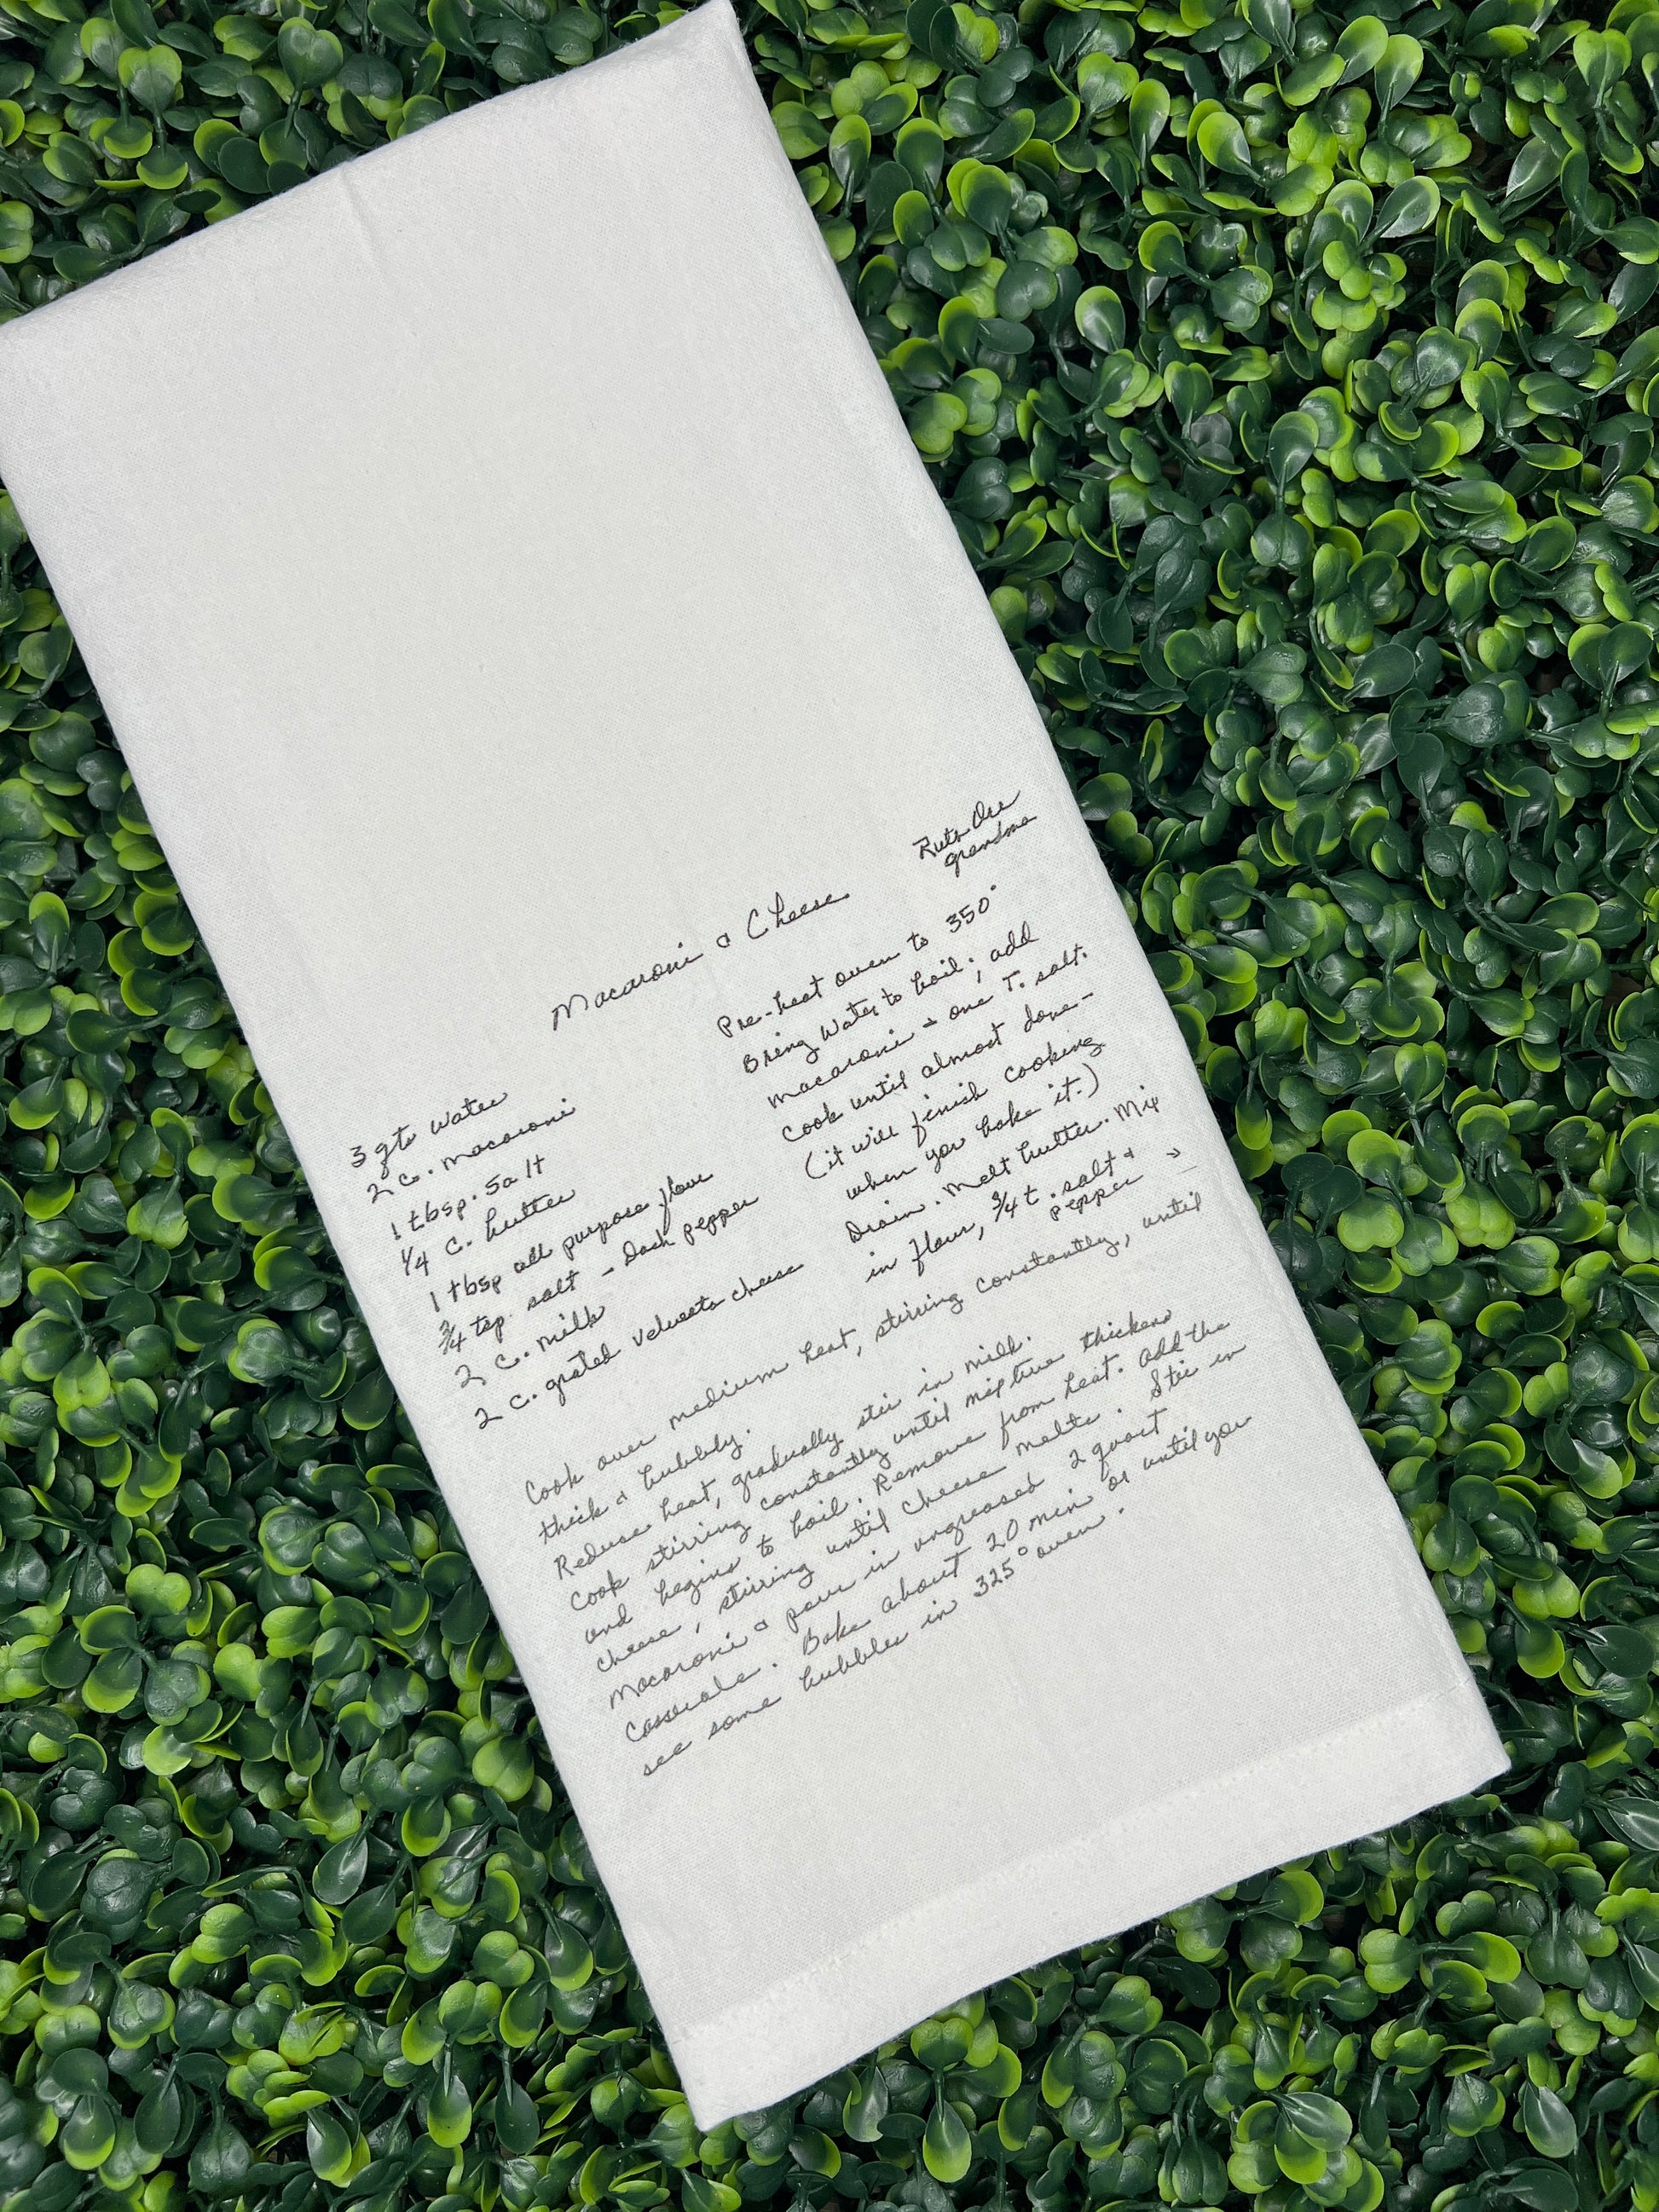 Ruth Orr
grandma
Macaroni & Cheese
3 qts water
2 c. macaroni
1 tbsp. salt
1/4 c. butter
1 tbsp all purpose flour
3/4 tsp. salt - Dash pepper
2 c. milk
2 c. grated velveeta cheese
Pre-heat oven to 350°
Bring Water to boil; add
macaroni & one T. salt.
Cook until almost done-
(it will finish cooking
when you bake it.)
Drain. Melt butter. Mix
in flour, 3/4 t. salt &
pepper →
Cook over medium heat, stirring constantly, until
thick & bubbly.
Reduce heat, gradually stir in milk.
Cook stirring constantly until mixture thickens
and begins to boil. Remove from heat. Add the
cheese, stirring until cheese melts. Stir in
macaroni & pour in ungreased 2 quart
casserole. Bake about 20 min or until you
see some bubbles in 325° oven.